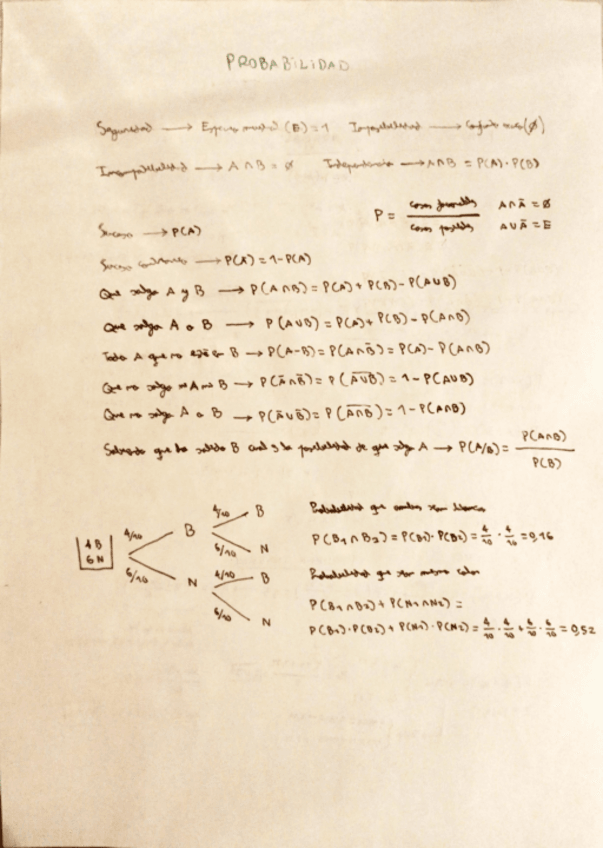 PROBABILIDAD
Seguridad → Espacio muestral (E) = 1 Imposibilidad → Conjunto vacío (Ø)
Incompatibilidad → A∩B = Ø Independencia → A∩B = P(A)·P(B)
P = casos favorables / casos posibles A∩Ā = Ø
A∪Ā = E
Suceso → P(A)
Suceso contrario → P(Ā) = 1-P(A)
Que salga A y B → P(A∩B) = P(A) + P(B) - P(A∪B)
Que salga A o B → P(A∪B) = P(A) + P(B) - P(A∩B)
Todo A que no esté en B → P(A-B) = P(A∩B̄) = P(A) - P(A∩B)
Que no salga ni A ni B → P(Ā∩B̄) = P(A∪B)‾ = 1 - P(A∪B)
Que no salga A o B → P(Ā∪B̄) = P(A∩B)‾ = 1 - P(A∩B)
Sabiendo que ha salido B cuál es la posibilidad de que salga A → P(A/B) = P(A∩B) / P(B)
4B
6N
4/10 B 4/10 B
6/10 N
6/10 N 4/10 B
6/10 N
Probabilidad que ambas sean blancas
P(B1∩B2) = P(B1)·P(B2) = 4/10 · 4/10 = 0,16
Probabilidad que sean mismo color
P(B1∩B2) + P(N1∩N2) =
P(B1)·P(B2) + P(N1)·P(N2) = 4/10 · 4/10 + 6/10 · 6/10 = 0,52